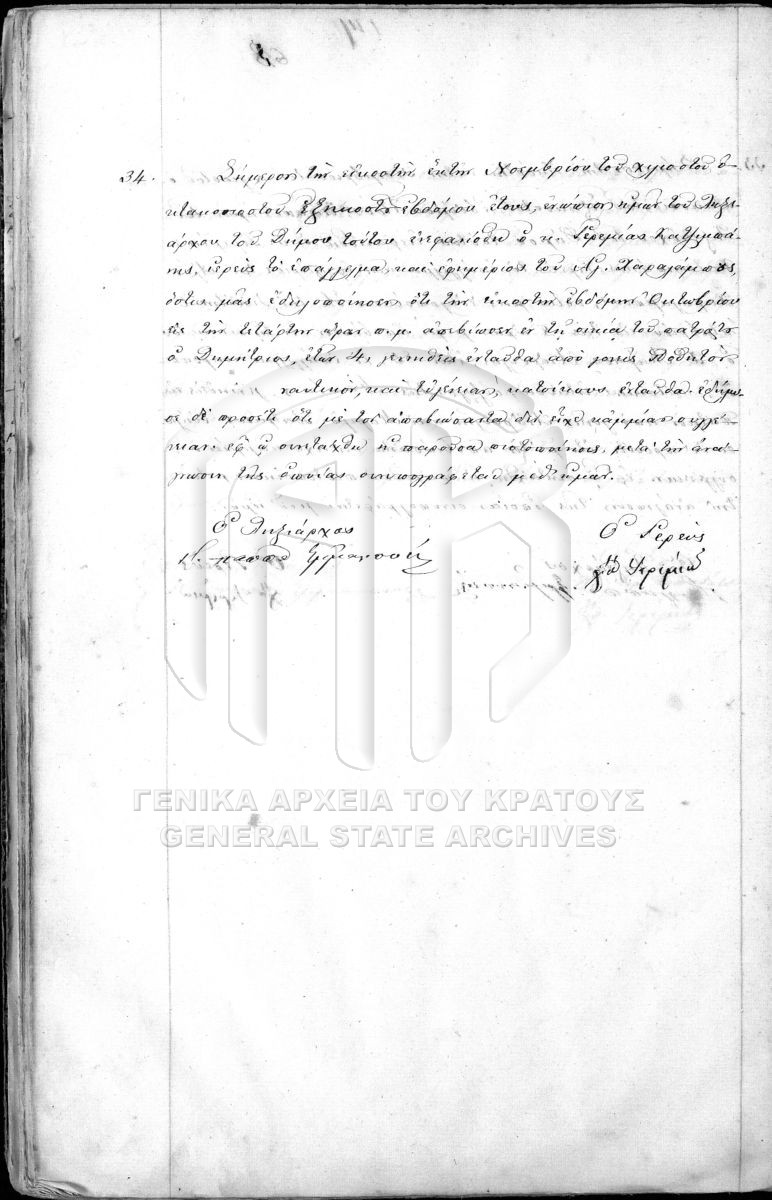 34. Σήμερον τὴν εἰκοστὴν ἕκτην Νοεμβρίου τοῦ χιλιοστοῦ ὀ-
κτακοσιοστοῦ ἑξηκοστοῦ ἑβδόμου ἔτους, ἐνώπιον ἡμῶν τοῦ Ληξι-
άρχου τοῦ Δήμου τούτου ἐνεφανίσθη ὁ κ. Ἱερεμίας Κατζιμπά-
νης, ἱερεὺς τὸ ἐπάγγελμα, καὶ ἐφημέριος τοῦ Ἁγ. Χαραλάμπους,
ὅστις μᾶς ἐδηλοποίησεν ὅτι τὴν εἰκοστὴν ἑβδόμην Ὀκτωβρίου
εἰς τὴν τετάρτην ὥραν π. μ. ἀπεβίωσεν ἐν τῇ οἰκίᾳ τοῦ πατρός του
ὁ Δημήτριος, ἐτῶν 4, γεννηθεὶς ἐνταῦθα ἀπὸ γονεῖς
ναυτικὸν, καὶ κατοίκους ἐνταῦθα. ἐδήλω-
σε δὲ προσέτι ὅτι μὲ τὸν ἀποβιώσαντα δὲν εἶχε κἀμμίαν συγγέ-
νειαν. ἐφ' ᾧ συνετάχθη ἡ παροῦσα πιστοποίησις, μετὰ τὴν ἀνά-
γνωσιν τῆς ὁποίας συνυπογράφεται μεθ' ἡμῶν.
Ὁ Ληξιάρχος
Ὁ Ἱερεὺς
παππᾶ Ἐμμανουὴλ
Ἱερεμίας
ΓΕΝΙΚΑ ΑΡΧΕΙΑ ΤΟΥ ΚΡΑΤΟΥΣ
GENERAL STATE ARCHIVES